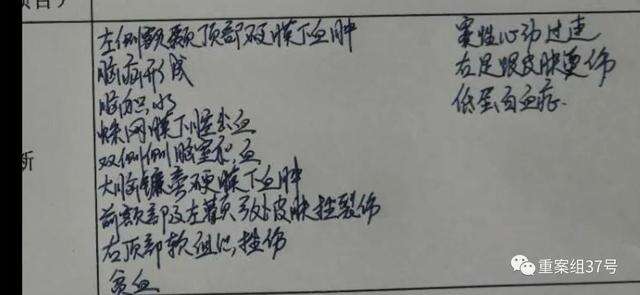 左侧额颞顶部硬膜下血肿
脑疝形成
脑积水
蛛网膜下腔出血
双侧侧脑室积血
大脑镰旁硬膜下血肿
前额部及左颧弓处皮肤挫裂伤
右顶部软组织挫伤
贫血
窦性心动过速
右足跟皮肤烫伤
低蛋白血症
断
重案组37号